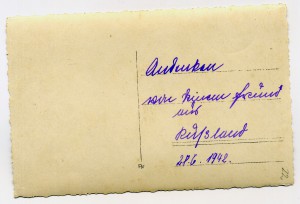 Andenken
von Deinem Freund
aus
Rußland
28.6. 1942.